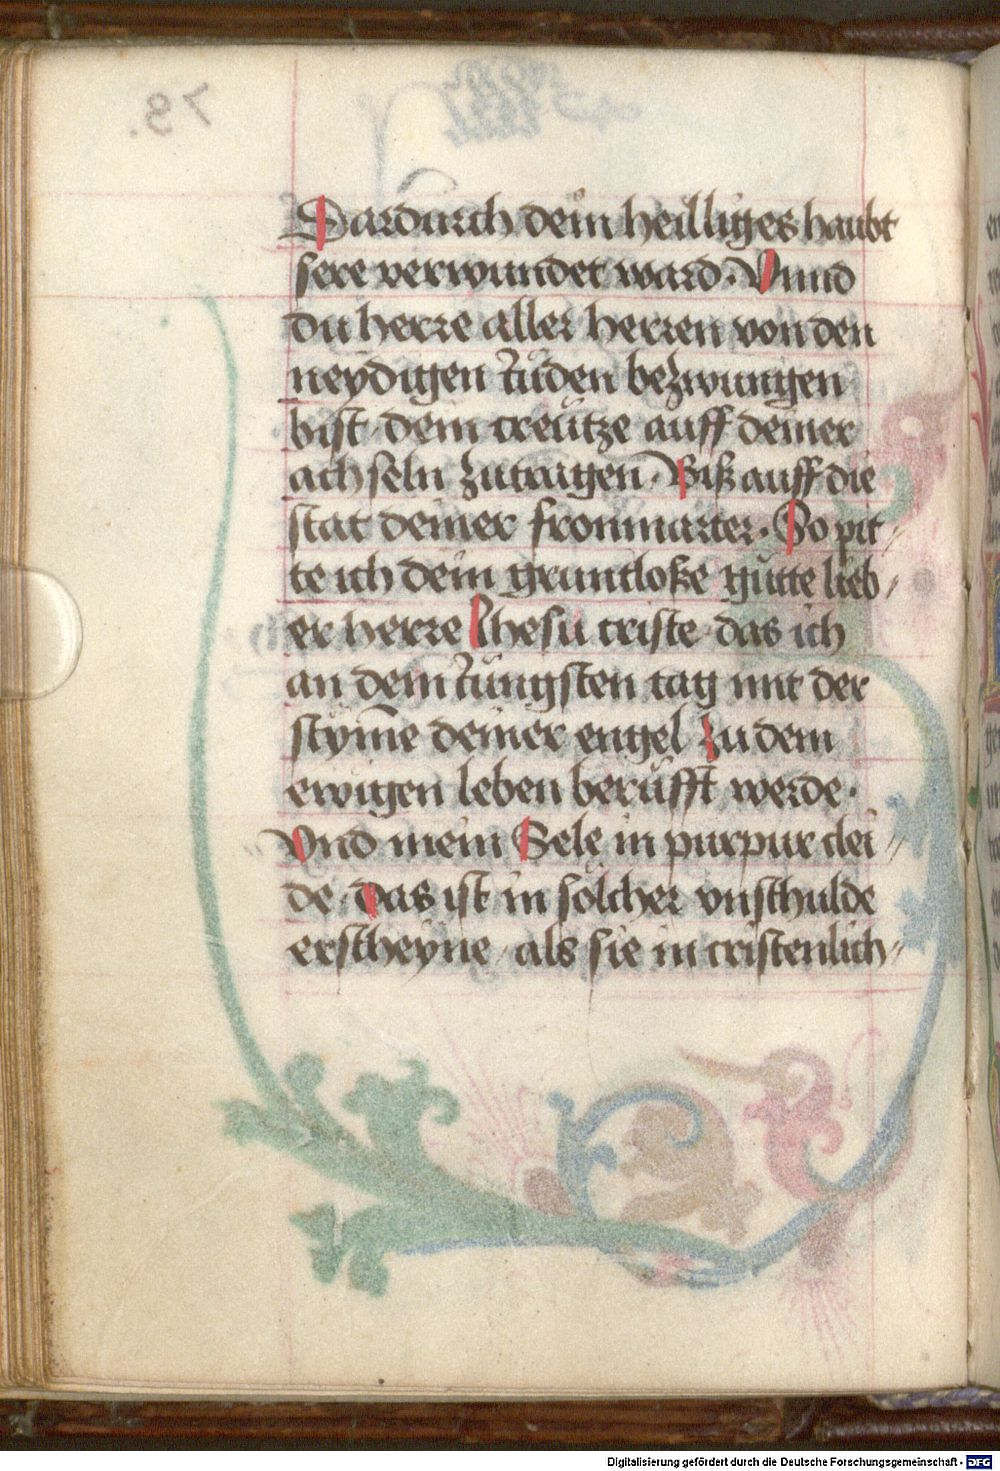 Dardurch dein heilliges haubt
sere verwundet ward. Vnnd
du herre aller herren von den
neydigen Juden bezwungen
bist dein creutze auff deiner
achseln zutragen. Biß auff die
stat deiner fronmarter. So pit-
te ich dein gruntloße gutte lieb-
er herre Jhesu criste das ich
an dem Jungsten tag mit der
styme deiner engel zu dem
ewigen leben berufft werde.
Vnd mein Sele in purpur clei-
de. Das ist in sölcher vnschulde
erscheyne als sie in cristenlich-
Digitalisierung gefördert durch die Deutsche Forschungsgemeinschaft - DFG